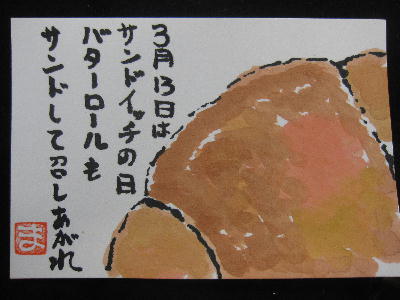 3月13日は
サンドイッチの日
バターロールも
サンドして召しあがれ